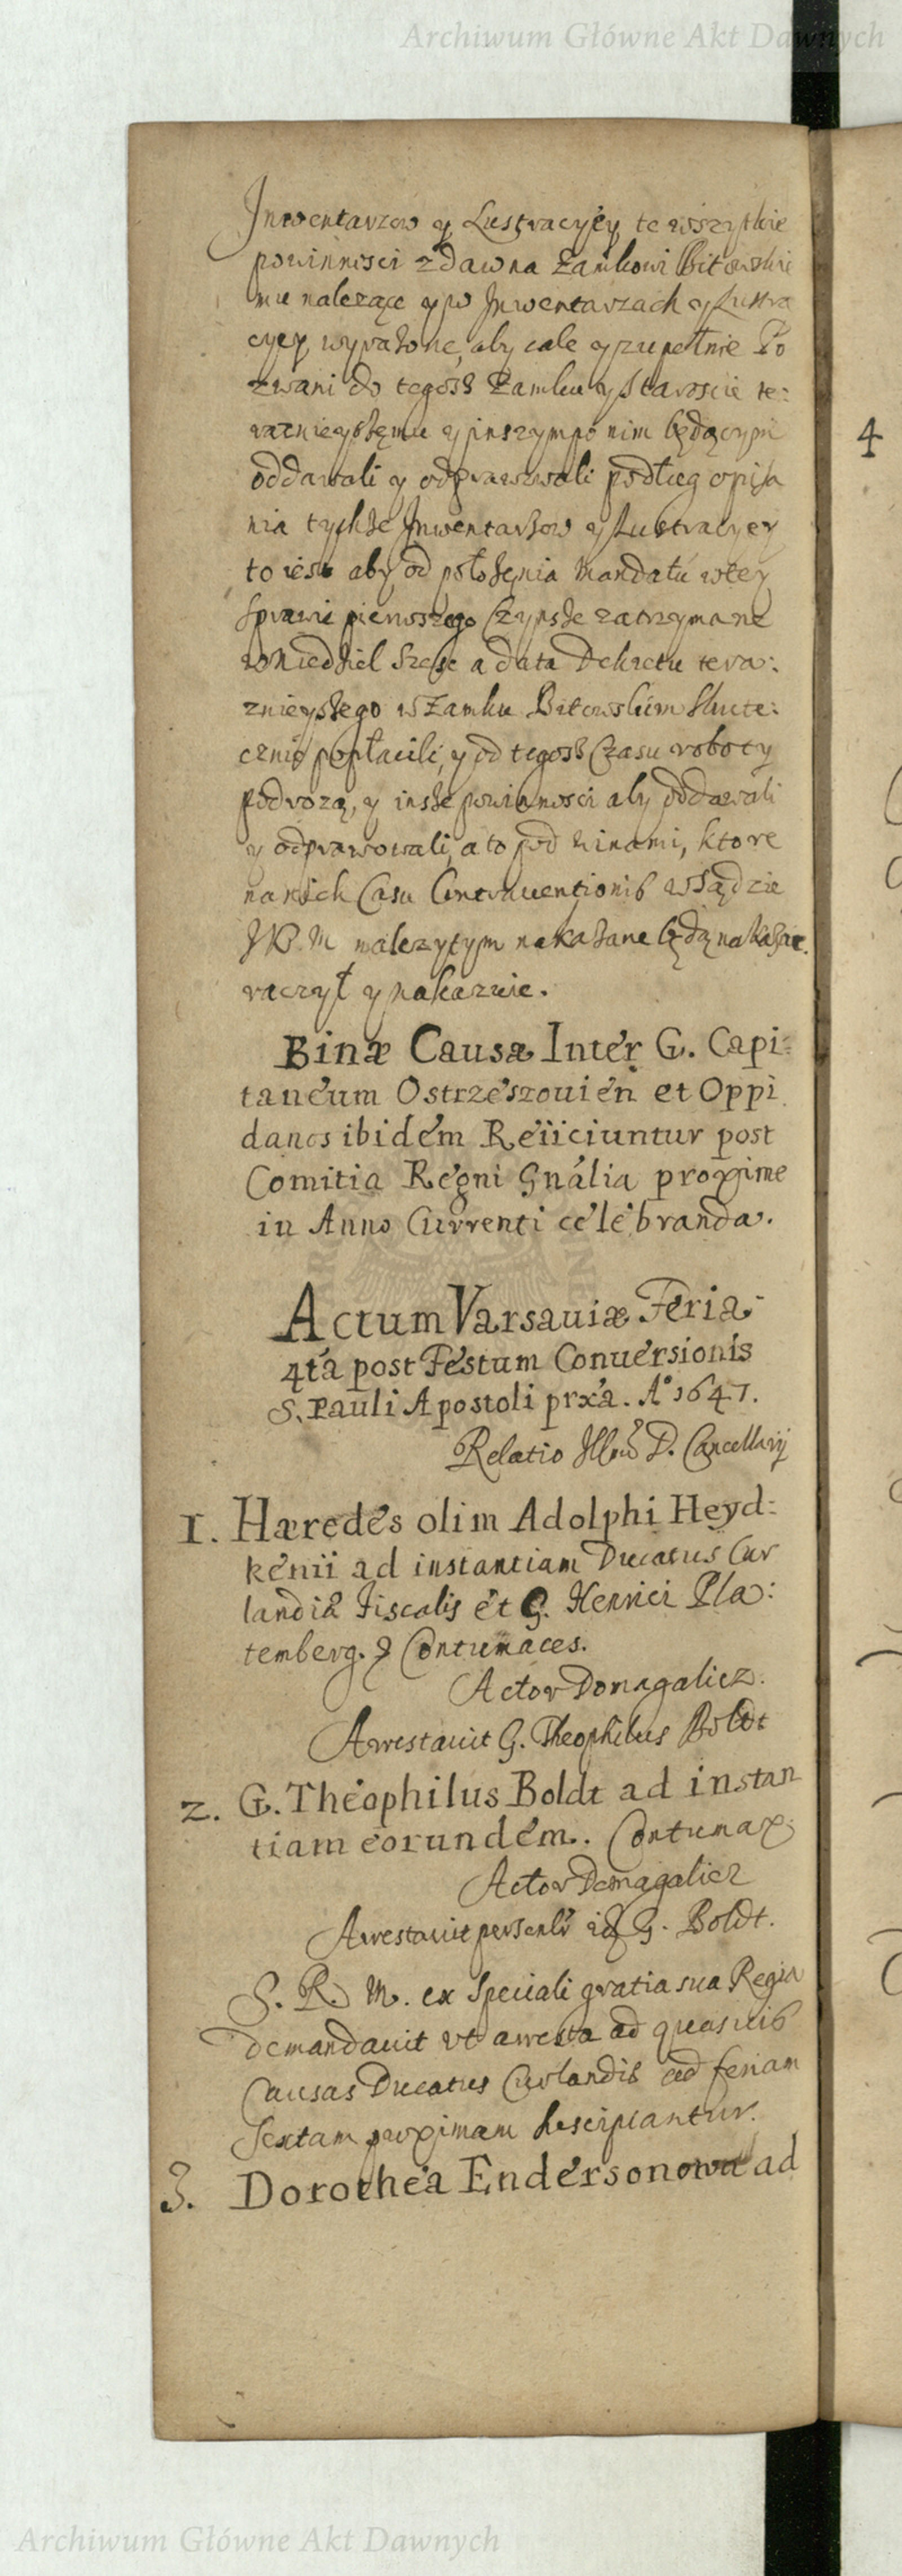 Archiwum Główne Akt Dawnych
Inwentarzow y Lustracyey te wszytkie
powinnosci zdawna Zamkowi Bitowskie
mu nalezące y po Inwentarzach y Lustra
cyey wyrażone, aby cale y zupełnie Po
zwani do tegosż Zamku y Staroscie te:
raznieyszemu y inszym po nim będącym
oddawali y odprawowali podług opisa
nia tychże Inwentarzow y Lustracyey
to iest aby od położenia Mandatu w tey
sprawie pierwszego Czynsze zatrzymane
w niedziel szesc a data Dekretu tera:
znieyszego w Zamku Bitowskim skute:
cznie popłacili, y od tegosż Czasu roboty
podwozą, y insze powinnosci aby oddawali
y odprawowali, a to pod winami, ktore
na nich Casu Contrauentionis w Sądzie
JKM nalezytym nakazane będą nakazac
raczył y nakazuie.
Binæ Causæ Inter G. Capi:
taneum Ostrzeszouien et Oppi
danos ibidem Reiiciuntur post
Comitia Regni Gnalia proxime
in Anno Currenti celebranda.
Actum Varsauiæ Feria
4ta post Festum Conuersionis
S. Pauli Apostoli prxa. A° 1647.
Relatio Illmi D. Cancellarij
4
1. Hæredes olim Adolphi Heyd:
kenii ad instantiam Ducatus Cur
landiæ Fiscalis et G. Henrici Pla:
temberg. Contumaces.
Actor Domagalicz.
Arrestauit G. Theophilus Boldt
2. G. Theophilus Boldt ad instan
tiam eorundem. Contumax
Actor Domagalicz
Arrestauit personlr id G. Boldt.
S. R. M. ex speciali gratia sua Regia
demandauit vt arresta ad quasuis
Causas Ducatus Curlandiæ ad feriam
Sextam proximam suscipiantur.
3. Dorothea Endersonowa ad
Archiwum Główne Akt Dawnych